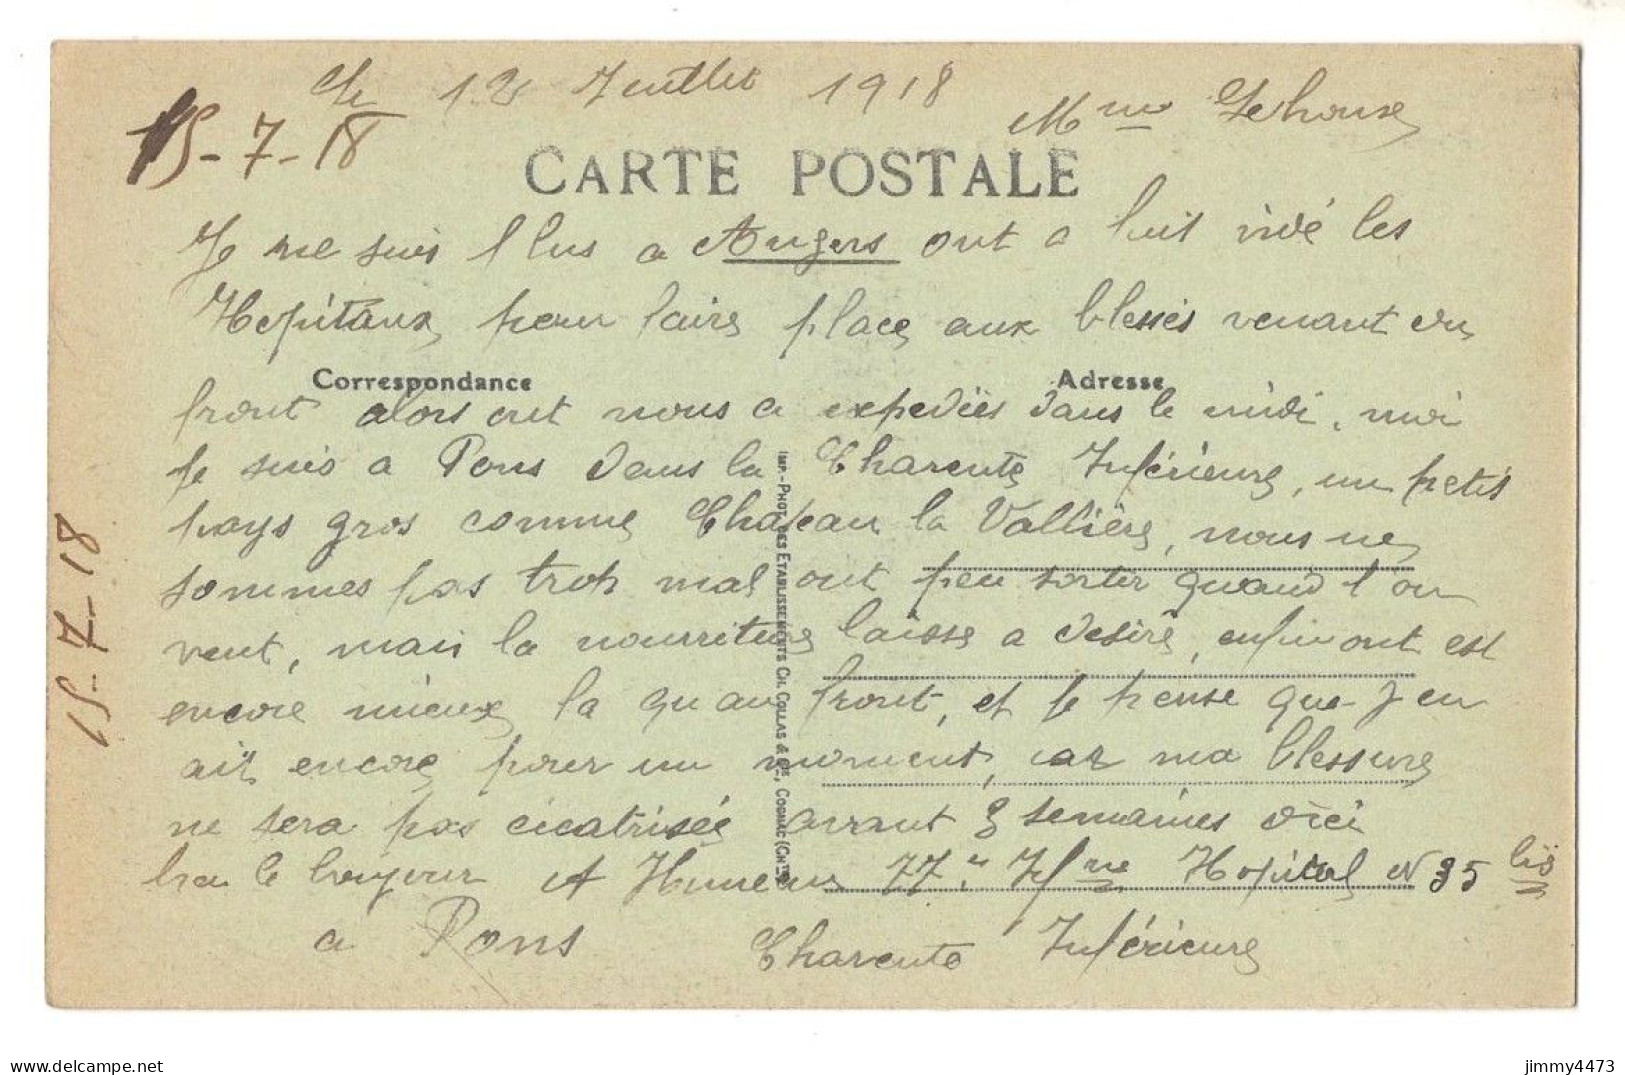 Le 12 Juillet 1918
15-7-18
Mme Lehoux
CARTE POSTALE
Je ne suis plus a Angers ont a fait vidé les
Hopitaux pour faire place aux blessés venant du
Correspondance
Adresse
front alors ont nous a expediées dans le midi, moi
je suis a Pons dans la Charente Inférieure, un petit
pays gros comme Chateau la Vallière, nous ne
sommes pas trop mal ont peu sortir quand l'on
veut, mais la nourriture laisse a desiré, enfin ont est
encore mieux la qu au front, et je pense que j en
ait encore pour un moment, car ma blessure
ne sera pas cicatrisée avant 3 semaines voici
A 77e Ifrie Hopital N 35 bis
a Pons Charente Inférieure
15-7-18
IMP.-PHOT. DES ETABLISSEMENTS CH. COLLAS & Cie, COGNAC (CHte)
https://www.delcampe.net
jimmy4473